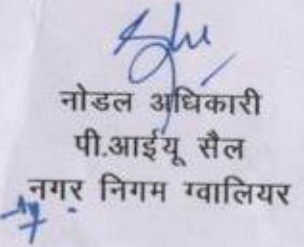 नोडल अधिकारी
पी.आईयू सैल
नगर निगम ग्वालियर